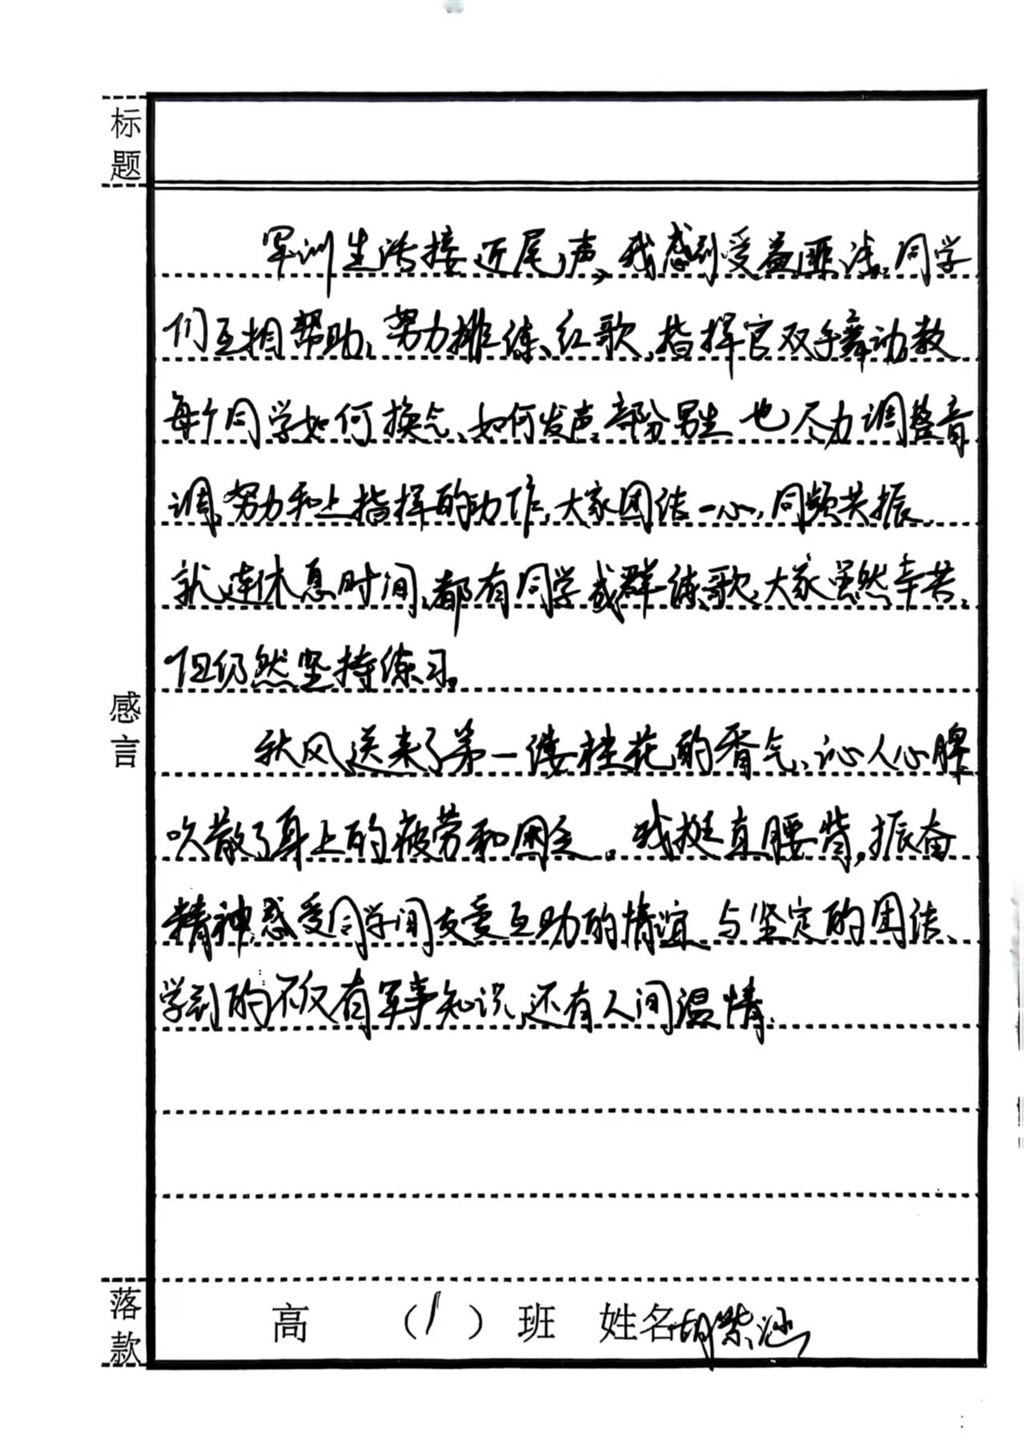 标题
军训生活接近尾声，我感到受益匪浅。同学
们互相帮助，努力排练红歌，指挥官双手舞动教
每个同学如何换气、如何发声，部分男生也尽力调整音
调，努力和上指挥的动作，大家团结一心，同频共振，
就连休息时间，都有同学成群练歌，大家虽然辛苦，
但仍然坚持练习。
感言
秋风送来了第一缕桂花的香气，沁人心脾
吹散了身上的疲劳和困乏。我挺直腰背，振奋
精神，感受同学间友爱互助的情谊与坚定的团结、
学到的不仅有军事知识，还有人间温情。
落款
高 （1）班 姓名胡紫涵